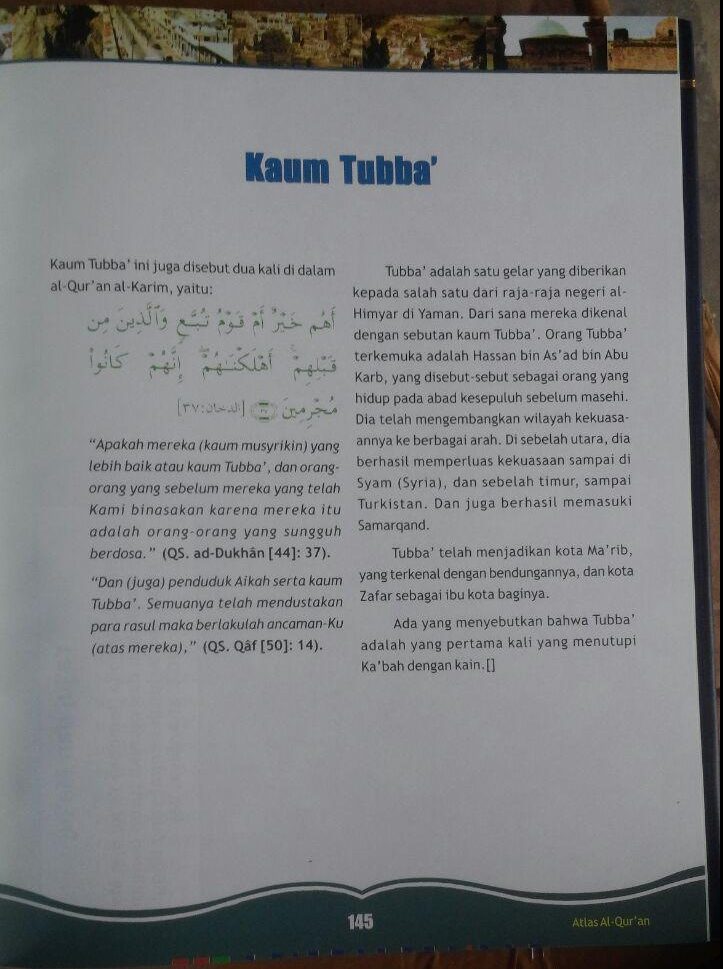 Kaum Tubba’
Kaum Tubba’ ini juga disebut dua kali di dalam
al-Qur’an al-Karim, yaitu:
أَهُمْ خَيْرٌ أَمْ قَوْمُ تُبَّعٍ وَٱلَّذِينَ مِن
قَبْلِهِمْ ۚ أَهْلَكْنَـٰهُمْ ۖ إِنَّهُمْ كَانُوا۟
مُجْرِمِينَ ﴿٣٧﴾ [الدخان: ٣٧]
“Apakah mereka (kaum musyrikin) yang
lebih baik atau kaum Tubba’, dan orang-
orang yang sebelum mereka yang telah
Kami binasakan karena mereka itu
adalah orang-orang yang sungguh
berdosa.” (QS. ad-Dukhân [44]: 37).
“Dan (juga) penduduk Aikah serta kaum
Tubba’. Semuanya telah mendustakan
para rasul maka berlakulah ancaman-Ku
(atas mereka),” (QS. Qâf [50]: 14).
Tubba’ adalah satu gelar yang diberikan
kepada salah satu dari raja-raja negeri al-
Himyar di Yaman. Dari sana mereka dikenal
dengan sebutan kaum Tubba’. Orang Tubba’
terkemuka adalah Hassan bin As’ad bin Abu
Karb, yang disebut-sebut sebagai orang yang
hidup pada abad kesepuluh sebelum masehi.
Dia telah mengembangkan wilayah kekuasa-
annya ke berbagai arah. Di sebelah utara, dia
berhasil memperluas kekuasaan sampai di
Syam (Syria), dan sebelah timur, sampai
Turkistan. Dan juga berhasil memasuki
Samarqand.
Tubba’ telah menjadikan kota Ma’rib,
yang terkenal dengan bendungannya, dan kota
Zafar sebagai ibu kota baginya.
Ada yang menyebutkan bahwa Tubba’
adalah yang pertama kali yang menutupi
Ka’bah dengan kain.[]
145
Atlas Al-Qur’an